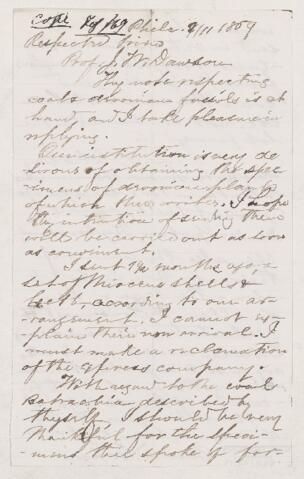 Copy Phila. 2/11 1869
Respected Friend
Prof. J. W. Dawson
Thy note respecting
coals devonian fossils is at
hand, and I take pleasure in
replying.
Our institution is very de
sirous of obtaining the spec
imens of devonian plants
of which thee writes. I hope
thy intention of sending them
will be carried out as soon
as convenient.
I sent 1½ months ago, a
set of Miocene shells &
teeth, according to our ar-
rangement. I cannot ex-
plain their non arrival. I
must make a reclamation
of the Express company.
With regard to the coal
Batrachia described by
thyself, I should be very
thankful for the speci-
mens thee spoke of for-